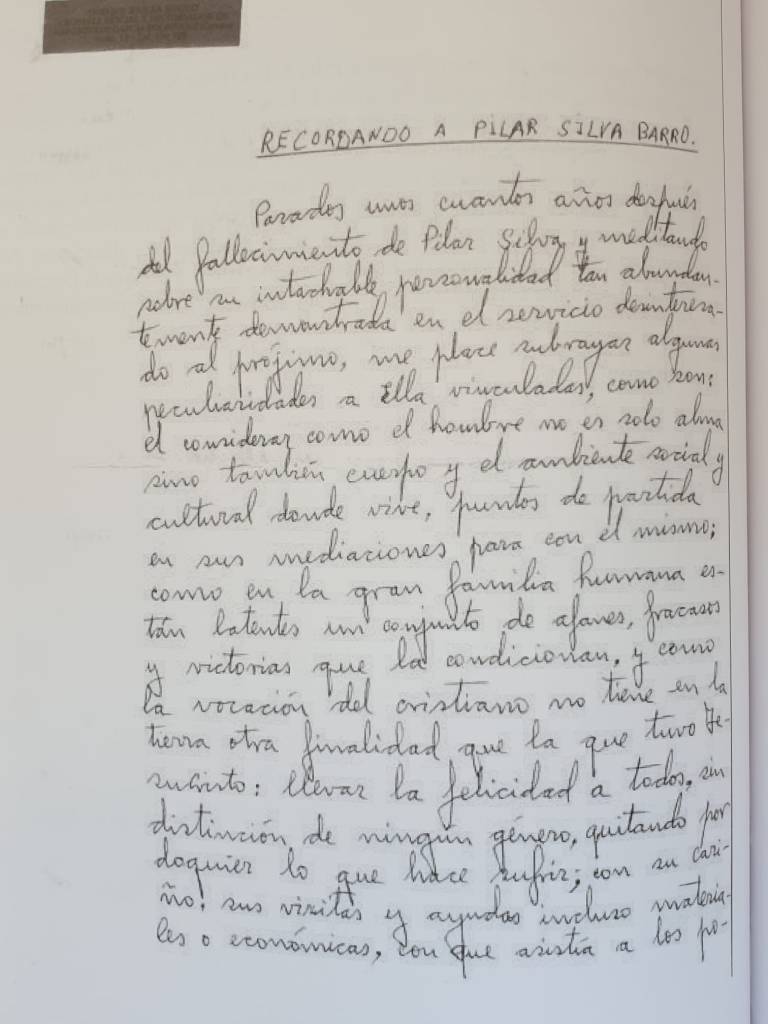 RECORDANDO A PILAR SILVA BARRO.
Pasados unos cuantos años después
del fallecimiento de Pilar Silva, y meditando
sobre su intachable personalidad tan abundan-
temente demostrada en el servicio desinteresa-
do al prójimo, me place subrayar algunas
peculiaridades a Ella vinculadas, como son:
el considerar como el hombre no es solo alma
sino también cuerpo y el ambiente social y
cultural donde vive, puntos de partida
en sus mediaciones para con el mismo;
como en la gran familia humana es-
tán latentes un conjunto de afanes, fracasos
y victorias que la condicionan, y como
la vocación del cristiano no tiene en la
tierra otra finalidad que la que tuvo Je-
sucristo: llevar la felicidad a todos, sin
distinción de ningún género, quitando por
doquier lo que hace sufrir; con su cari-
ño, sus visitas y ayudas incluso materia-
les o económicas, con que asistía a los po-